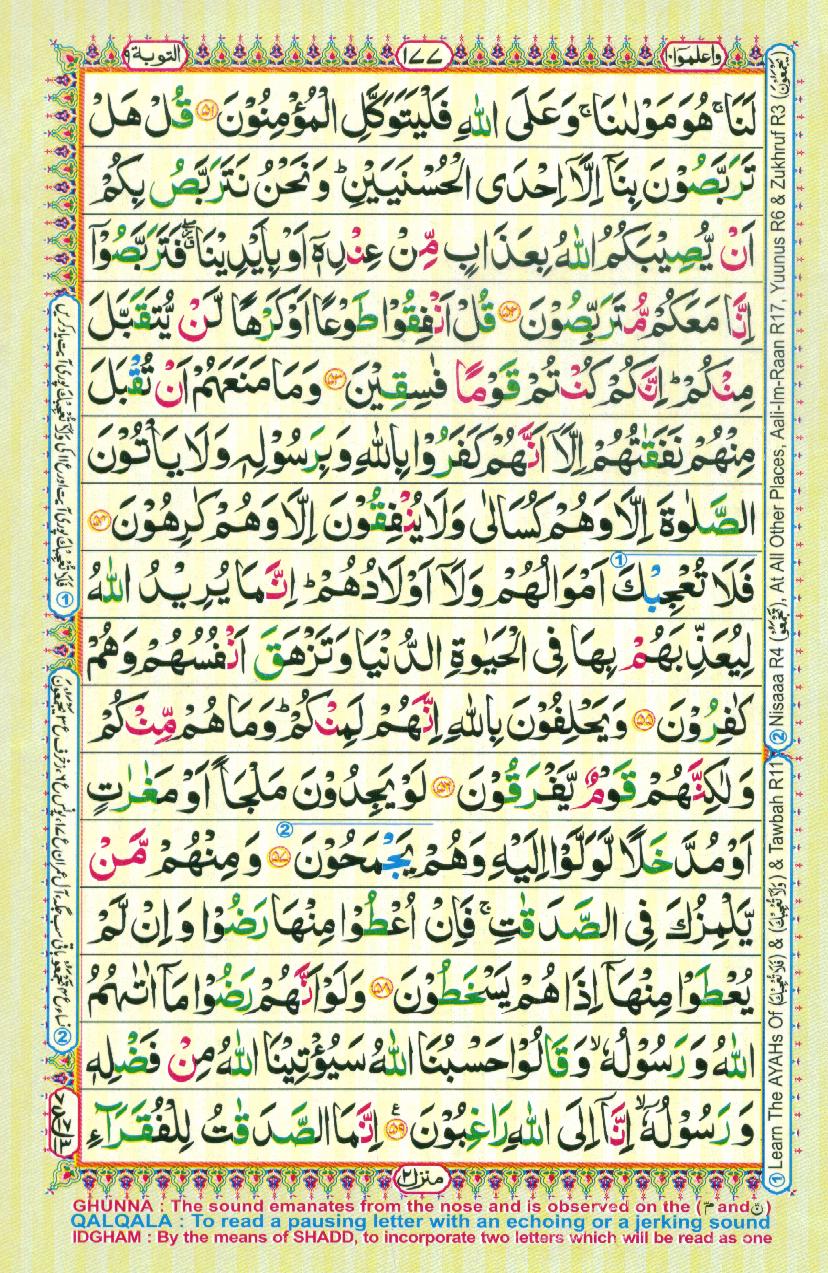 واعلموا۱۰
۱۷۷
التوبة۹
لَنَا ۚ هُوَ مَوْلٰىنَا ۚ وَعَلَى اللّٰهِ فَلْيَتَوَكَّلِ الْمُؤْمِنُوْنَ ۝۵۱ قُلْ هَلْ
تَرَبَّصُوْنَ بِنَاۤ اِلَّاۤ اِحْدَى الْحُسْنَيَيْنِ ؕ وَنَحْنُ نَتَرَبَّصُ بِكُمْ
اَنْ يُّصِيْبَكُمُ اللّٰهُ بِعَذَابٍ مِّنْ عِنْدِهٖۤ اَوْ بِاَيْدِيْنَا ۖ فَتَرَبَّصُوْۤا
اِنَّا مَعَكُمْ مُّتَرَبِّصُوْنَ ۝۵۲ قُلْ اَنْفِقُوْا طَوْعًا اَوْ كَرْهًا لَّنْ يُّتَقَبَّلَ
مِنْكُمْ ؕ اِنَّكُمْ كُنْتُمْ قَوْمًا فٰسِقِيْنَ ۝۵۳ وَمَا مَنَعَهُمْ اَنْ تُقْبَلَ
مِنْهُمْ نَفَقٰتُهُمْ اِلَّاۤ اَنَّهُمْ كَفَرُوْا بِاللّٰهِ وَبِرَسُوْلِهٖ وَلَا يَاْتُوْنَ
الصَّلٰوةَ اِلَّا وَهُمْ كُسَالٰى وَلَا يُنْفِقُوْنَ اِلَّا وَهُمْ كٰرِهُوْنَ ۝۵۴
1
فَلَا تُعْجِبْكَ اَمْوَالُهُمْ وَلَاۤ اَوْلَادُهُمْ ؕ اِنَّمَا يُرِيْدُ اللّٰهُ
لِيُعَذِّبَهُمْ بِهَا فِى الْحَيٰوةِ الدُّنْيَا وَتَزْهَقَ اَنْفُسُهُمْ وَهُمْ
كٰفِرُوْنَ ۝۵۵ وَيَحْلِفُوْنَ بِاللّٰهِ اِنَّهُمْ لَمِنْكُمْ ؕ وَمَا هُمْ مِّنْكُمْ
وَلٰكِنَّهُمْ قَوْمٌ يَّفْرَقُوْنَ ۝۵۶ لَوْ يَجِدُوْنَ مَلْجَاً اَوْ مَغٰرٰتٍ
2
اَوْ مُدَّخَلًا لَّوَلَّوْا اِلَيْهِ وَهُمْ يَجْمَحُوْنَ ۝۵۷ وَمِنْهُمْ مَّنْ
يَّلْمِزُكَ فِى الصَّدَقٰتِ ۚ فَاِنْ اُعْطُوْا مِنْهَا رَضُوْا وَاِنْ لَّمْ
يُعْطَوْا مِنْهَاۤ اِذَا هُمْ يَسْخَطُوْنَ ۝۵۸ وَلَوْ اَنَّهُمْ رَضُوْا مَاۤ اٰتٰىهُمُ
اللّٰهُ وَرَسُوْلُهٗ ۙ وَقَالُوْا حَسْبُنَا اللّٰهُ سَيُؤْتِيْنَا اللّٰهُ مِنْ فَضْلِهٖ
وَرَسُوْلُهٗۤ ۙ اِنَّاۤ اِلَى اللّٰهِ رَاغِبُوْنَ ۝۵۹ اِنَّمَا الصَّدَقٰتُ لِلْفُقَرَآءِ
منزل۲
1 Learn The AYAHs Of (فَلَا تُعْجِبْكَ) & (وَلَا تُعْجِبْكَ) & Tawbah R11
2 Nisaaa R4 (يَجْمَحُوْنَ), At All Other Places, Aali-Im-Raan R17, Yuunus R6 & Zukhruf R3 (يَجْمَعُوْنَ)
GHUNNA : The sound emanates from the nose and is observed on the (مّ and نّ)
QALQALA : To read a pausing letter with an echoing or a jerking sound
IDGHAM : By the means of SHADD, to incorporate two letters which will be read as one